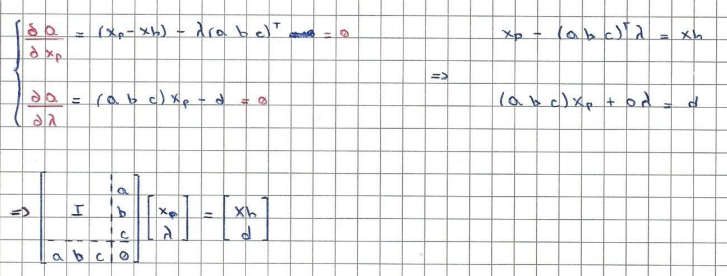 ∂a/∂xp = (xp - xh) - λ(a b c)ᵀ = 0
∂a/∂λ = (a b c) xp - d = 0
=>
xp - (a b c)ᵀ λ = xh
(a b c) xp + 0λ = d
=> [ I | a b c ; a b c | 0 ] [ xp ; λ ] = [ xh ; d ]